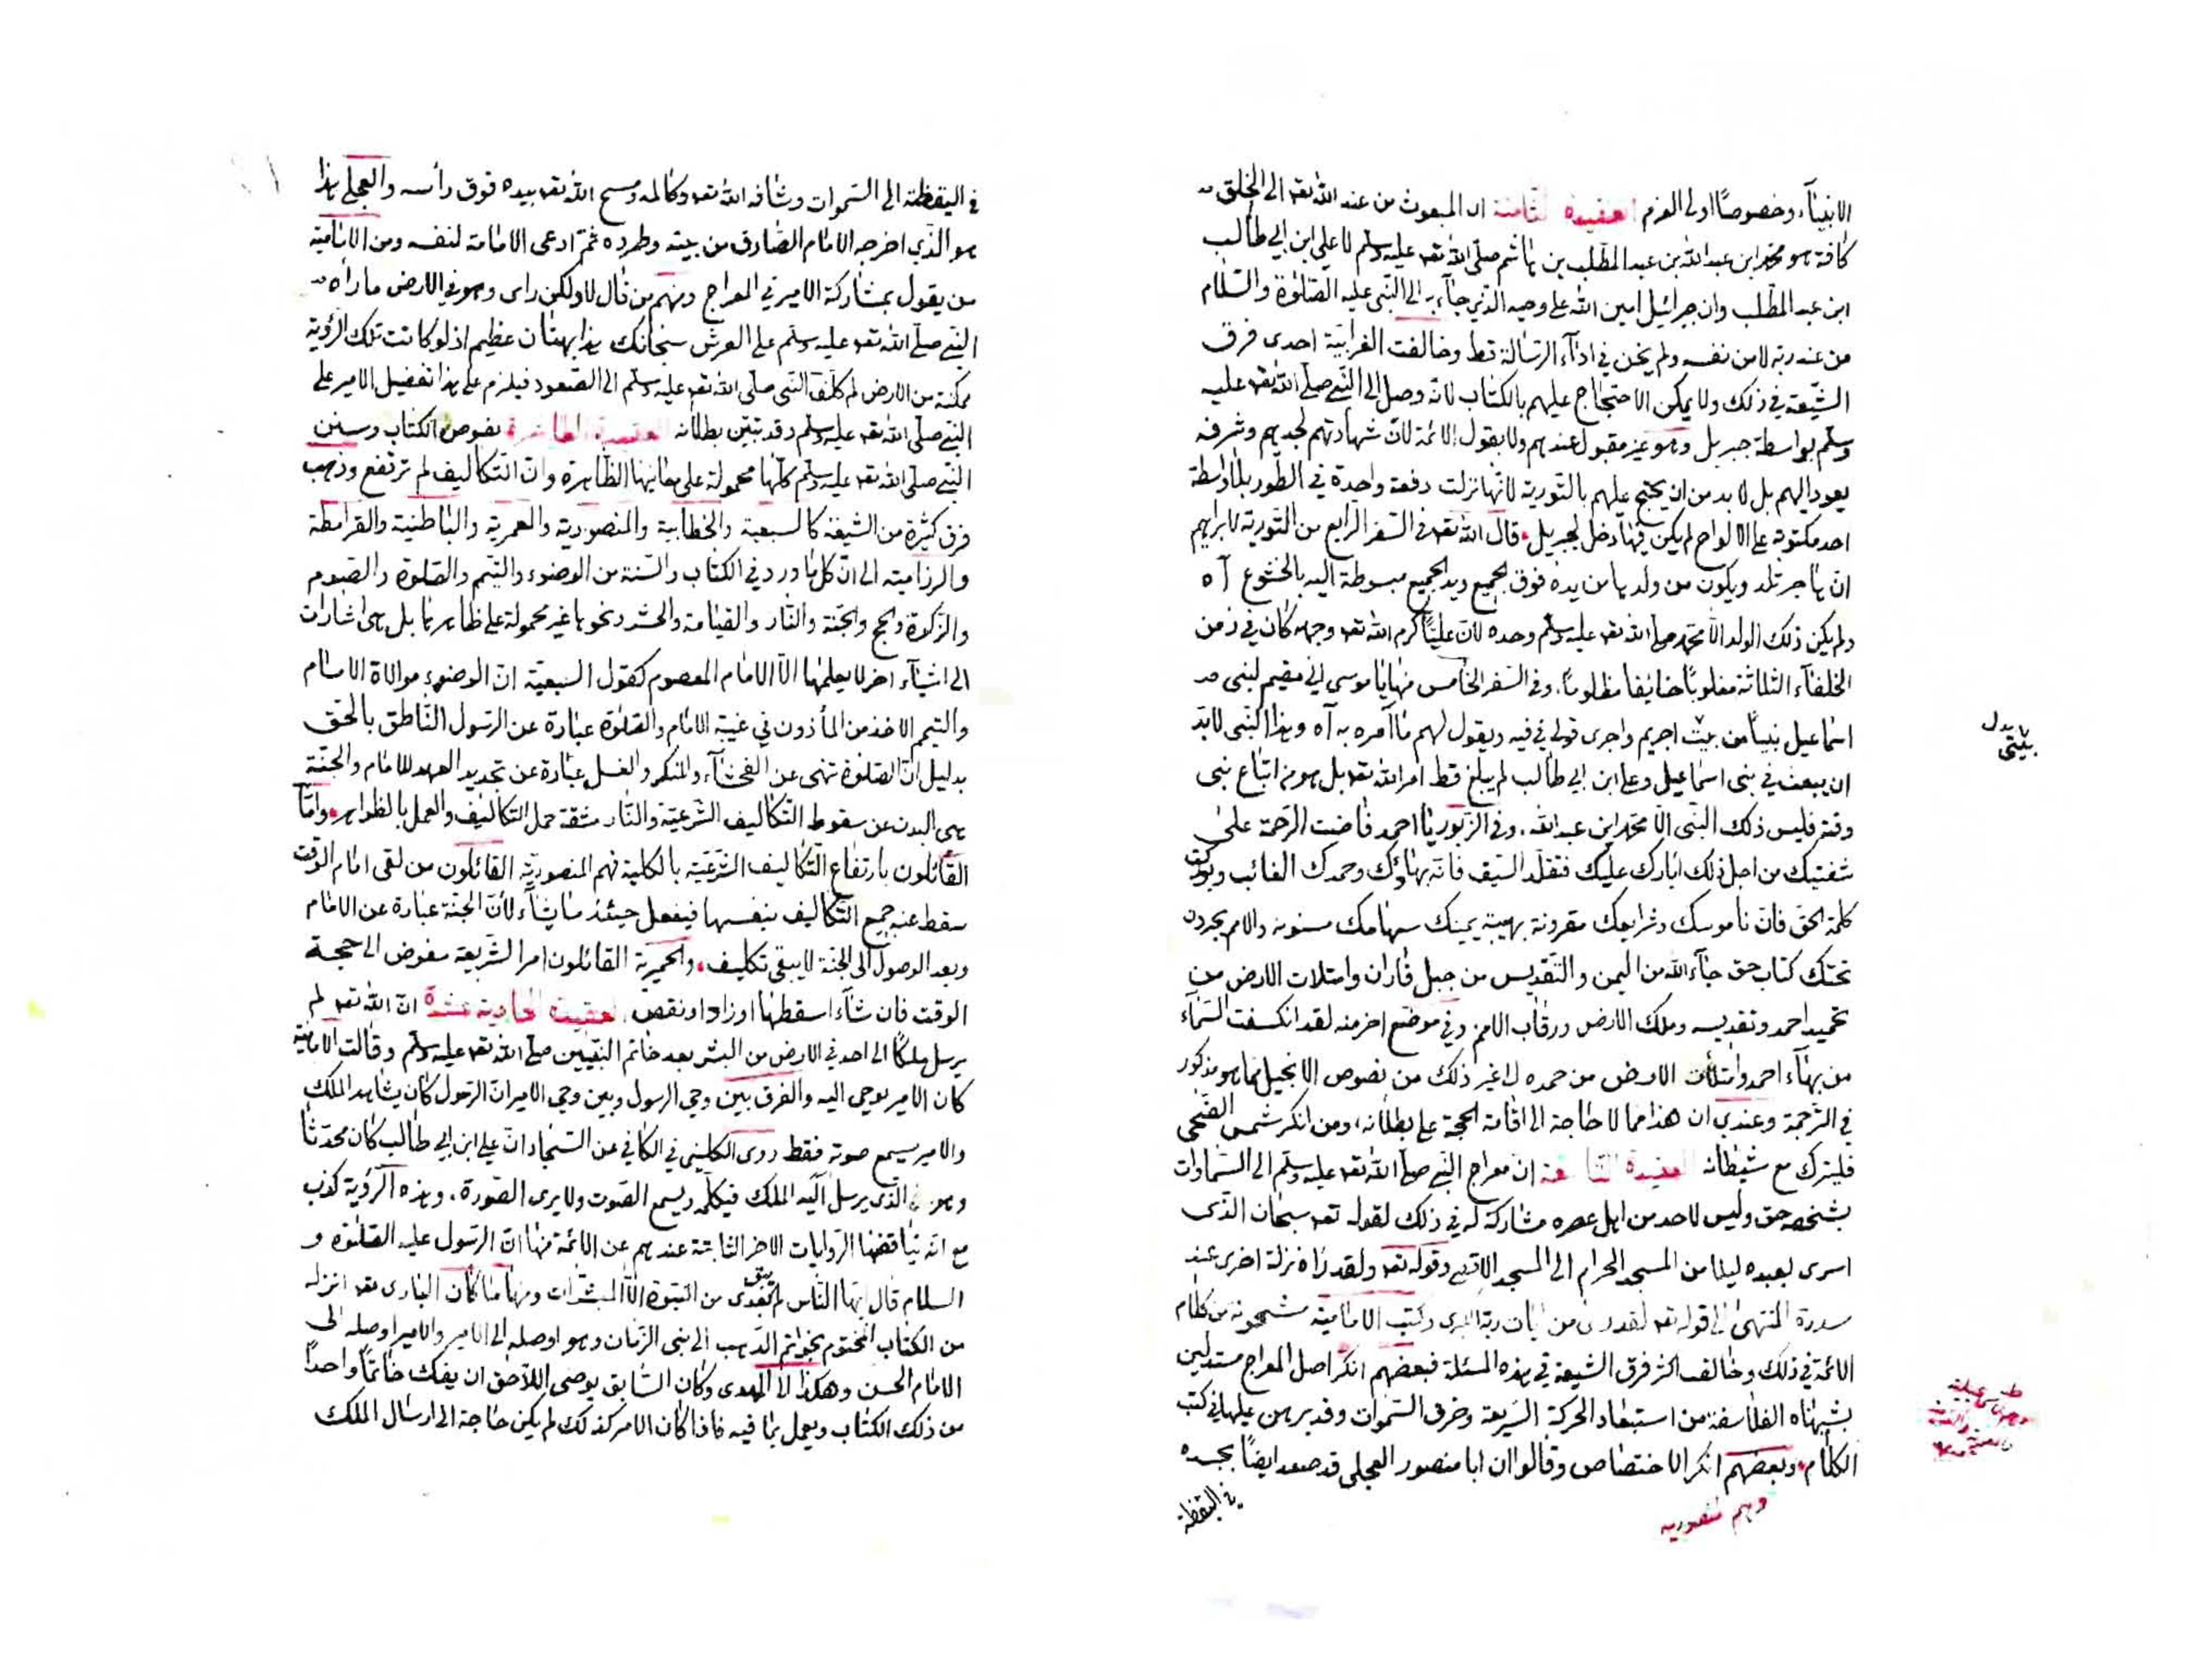 الانبيآء وخصوصًا اولى العزم العقيدة الثامنة ان المبعوث من عند الله تعه الى الخلق
كافة هو محمد ابن عبد الله بن عبد المطلب بن هاشم صلى الله تعه عليه وسلم لا علي ابن ابي طالب
ابن عبد المطلب وان جبرائيل امين الله على وحيه الذي جآء به الى النبى عليه الصلوة والسلام
من عند ربه لا من نفسه ولم يخن في ادآء الرسالة قط وخالفت الغرابية احدى فرق
الشيعة في ذلك ولا يمكن الاحتجاج عليهم بالكتاب لانه وصل الى النبي صلى الله تعه عليه
وسلم بواسطة جبريل وهو غير مقبول عندهم ولا بقول الائمة لان شهادتهم لجدهم وشرفه
يعود اليهم بل لا بد من ان يحتج عليهم بالتورية لانها نزلت دفعة واحدة في الطور بلا واسطة
احد مكتوبة على الالواح لم يكن فيها دخل لجبريل قال الله تعه في السفر الرابع من التورية لابراهيم
ان هاجر تلد ويكون من ولدها من يده فوق الجميع ويد الجميع مبسوطة اليه بالخشوع آه
ولم يكن ذلك الولد الا محمد صلى الله تعه عليه وسلم وحده لان عليًا كرم الله تعه وجهه كان في زمن
الخلفآء الثلاثة مغلوبًا خائفا مظلومًا، وفي السفر الخامس منها يا موسى اني مقيم لبنى
اسماعيل نبيًا من بيت اجريم واجرى قولي في فيه ويقول لهم ما آمره به آه وهذا النبى لابد
ان يبعث في بنى اسماعيل وعلى ابن ابي طالب لم يبلغ قط امر الله تعه بل هو من اتباع نبى
وقته فليس ذلك النبى الا محمد ابن عبد الله، وفي الزبور يا احمد فاضت الرحمة على
شفتيك من اجل ذلك ابارك عليك فتقلد السيف فانه بهاؤك وحمدك الغالب وبوركت
كلمة الحق فان ناموسك وشرايعك مقرونة بهيبة يمينك سهامك مسنونه والامم يجرون
تحتك كتاب حق جآء الله من اليمن والتقديس من جبل فاران وامتلات الارض من
تحميد احمد وتقديسه وملك الارض ورقاب الامم وفي موضع اخر منه لقد انكسفت السمآء
من بهآء احمد وامتلأت الارض من حمده الى غير ذلك من نصوص الانجيل مما هو مذكور
في الترجمة وعندي ان هذا مما لا حاجة الى اقامة الحجة على بطلانه، ومن انكر شمس الضحى
فليترك مع شيطانه العقيدة التاسعة ان معراج النبي صلى الله تعه عليه وسلم الى السماوات
بشخصه حق وليس لاحد من اهل عصره مشاركة له في ذلك لقوله تعه سبحان الذى
اسرى بعبده ليلا من المسجد الحرام الى المسجد الاقصى وقوله تعه ولقد رآه نزلة اخرى عند
سدرة المنتهى الى قوله تعه لقد راى من ايات ربه الكبرى وكتب الامامية مشحونة من كلام
الائمة في ذلك وخالف اكثر فرق الشيعة في هذه المسئلة فبعضهم انكر اصل المعراج مستدلين
بشبهات الفلاسفة من استبعاد الحركة السريعة وخرق السموات وقد برهن عليها في كتب
الكلام وبعضهم انكر الاختصاص وقالوا ان ابا منصور العجلى قد صعد ايضًا بجسده
في اليقظة
وهم منصوريه
في اليقظة الى السموات وشافه الله تعه وكالمه ومسح الله تعه بيده فوق رأسه والعجلى هذا
هو الذي اخرجه الامام الصادق من بيته وطرده ثم ادعى الامامة لنفسه ومن الامامية
من يقول بمشاركة الامير في المعراج ومنهم من قال لا ولكن راى وهو في الارض ما رآه
النبي صلى الله تعه عليه وسلم على العرش سبحانك هذا بهتان عظيم اذ لو كانت تلك الرؤية
ممكنة من الارض لم كلف النبى صلى الله تعه عليه وسلم الى الصعود فيلزم على هذا تفضيل الامير على
النبي صلى الله تعه عليه وسلم وقد تبين بطلانه العقيدة العاشرة نصوص الكتاب وسنن
النبي صلى الله تعه عليه وسلم كلها محمولة على معانيها الظاهرة وان التكاليف لم ترتفع وذهب
فرق كثيرة من الشيعة كالسبعية والخطابية والمنصورية والمعمرية والباطنية والقرامطة
والرزامية الى ان كل ما ورد في الكتاب والسنة من الوضوء والتيمم والصلوة والصوم
والزكوة والحج والجنة والنار والقيامة والحشر ونحوها غير محمولة على ظاهرها بل هى اشارات
الى اشيآء اخر لا يعلمها الا الامام المعصوم كقول السبعية ان الوضوء موالاة الامام
والتيمم الاخذ من المأذون في غيبة الامام والصلوة عبارة عن الرسول الناطق بالحق
بدليل ان الصلوة تنهى عن الفحشآء والمنكر والغسل عبارة عن تجديد العهد للامام والجنة
هى البدن عن سقوط التكاليف الشرعية والنار مشقة حمل التكاليف والعمل بالظواهر واما
القائلون بارتفاع التكاليف الشرعية بالكلية فهم المنصورية القائلون من لقى امام الوقت
سقط عنه جميع التكاليف بنفسها فيفعل حينئذ ما يشآء لأن الجنة عبارة عن الامام
وبعد الوصول الى الجنة لا يبقى تكليف، والحميرية القائلون امر الشريعة مفوض الى حجة
الوقت فان شآء اسقطها او زاد او نقص، العقيدة الحادية عشرة ان الله تعه لم
يرسل ملكًا الى احد في الارض من البشر بعد خاتم النبيين صلى الله تعه عليه وسلم وقالت الامامية
كان الامير يوحى اليه والفرق بين وحي الرسول وبين وحي الامير ان الرسول كان يشاهد الملك
والامير يسمع صوته فقط روى الكلينى في الكافي عن السجاد ان على ابن ابي طالب كان محدثا
وهو الذى يرسل اليه الملك فيكلمه ويسمع الصوت ولا يرى الصورة، وهذه الرؤية كذب
مع انه يناقضها الروايات الاخر الثابتة عندهم عن الائمة منها ان الرسول عليه الصلوة و
السلام قال ايها الناس لم يبق بعدى من النبوة الا المبشرات ومنها ما كان البارى تعه انزله
من الكتاب المختوم بخواتم الذهب الى نبى الزمان وهو اوصله الى الامير والامير اوصله الى
الامام الحسن وهكذا الى المهدى وكان السابق يوصى اللاحق ان يفك خاتمًا واحدًا
من ذلك الكتاب ويعمل بما فيه فاذا كان الامر كذلك لم يكن حاجة الى ارسال الملك